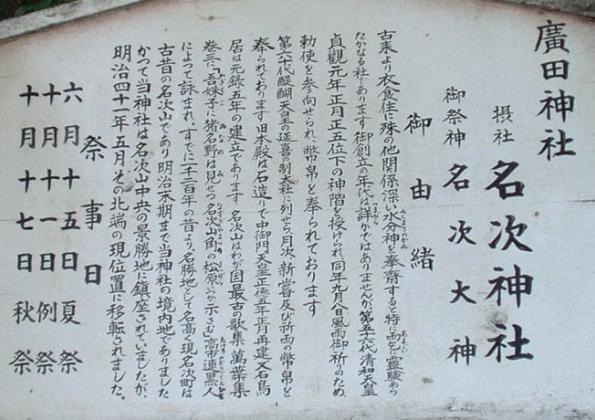 廣田神社
摂社 名次神社
御祭神 名次大神
御由緒
古来より衣食住に殊の他関係深い水分神を奉斎すると特に雨乞に霊験あら
たかなる社であります御創立の年代は詳かではありませんが第五十六代清和天皇
貞観元年正月正五位下の神階を授けられ同年九月八日風雨御祈のため
勅使を参向せられ幣帛を奉られております
第六十代醍醐天皇の延喜の制大社に列せられ月次新嘗及び祈雨の幣帛と
奉られております旧本殿は石造りで中御門天皇正徳五年正月再建又石鳥
居は元録五年の建立であります 名次山はわが国最古の歌集 萬葉集
巻三に吾妹子に猪名野は見せつ名次山角の松原いつか示さむ 高市連黒人
によって詠まれ、すでに千二百年の昔より名勝地として名高く現名次町は
古昔の名次山であり明治末期まで当神社の境内地でありました
かつて当神社は名次山中央の景勝地に鎮座されていましたが、
明治四十一年五月その北端の現位置に移転されました。
祭事日
六月十五日夏祭
十月十一日例祭
十月十七日秋祭